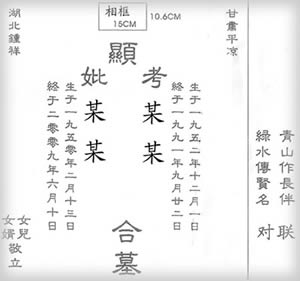 对联
青山作長伴
綠水傳賢名
甘肅平凉
相框
15CM
10.6CM
顯
考某某
生于一九五二年十二月一日
終于一九九一年九月廿二日
妣某某
生于一九五零年二月十三日
終于二零零九年六月十日
合墓
湖北鍾祥
女兒
女婿
敬立